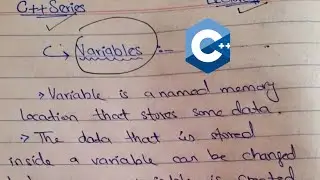 C++ Series
Variables :-
C++
→ Variable is a named memory
location that stores some data.
→ The data that is stored
inside a variable can be changed